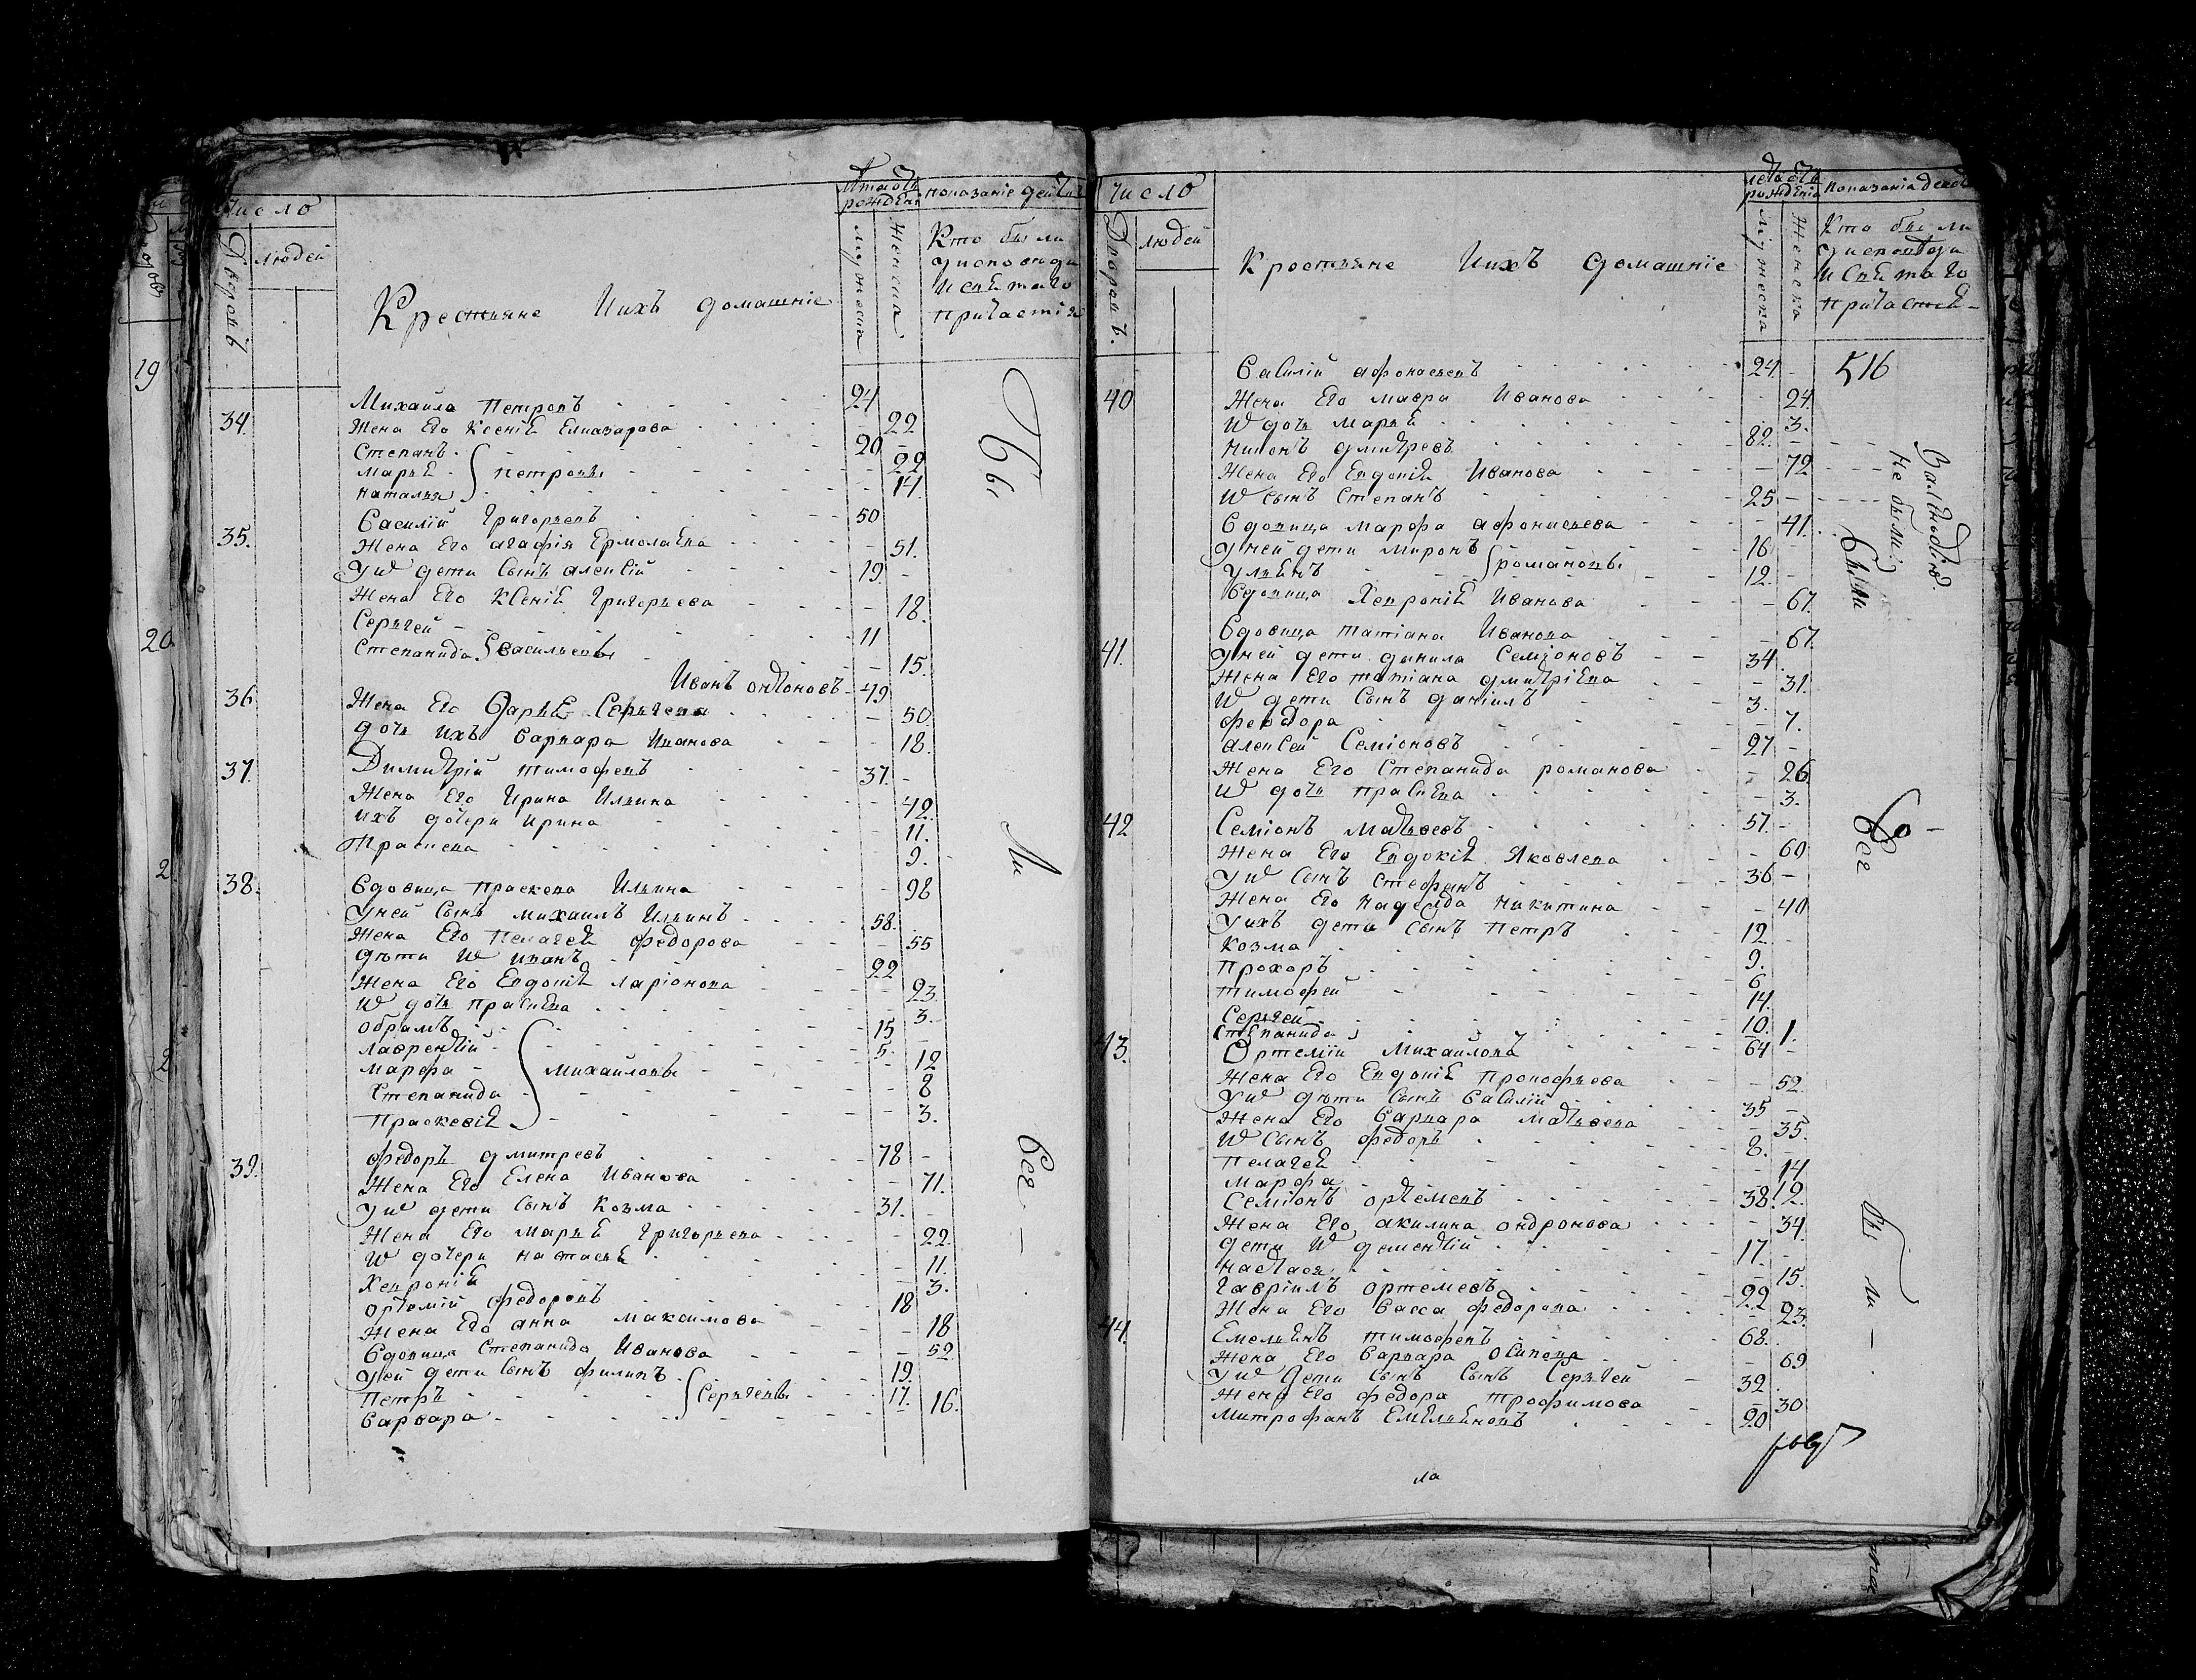 Число
Дворовъ
людей
Крестьяне Ихъ домашніе
Лета отъ рожденія
мужеска
Женска
показаніе действ
Кто были
у исповеди
и святаго
причастія
19
20
2
2
Михаила Петровъ 24
34. Жена Его Ксеніѣ Елиазарова 22
Степанъ 20
Марьѣ } петровы 22
наталья 14.
Василій Григорьевъ 50
35. Жена Его агафія Ермолаѣва 51.
У ни дети Сынъ алексій 19
Жена Его Ксеніѣ Григорьева 18.
Серьгей 11
Степанида } васильевы 15.
Иванъ онтоновъ 49
36 Жена Его Дарьѣ Серьгева 50.
дочь Ихъ Варвара Иванова 18.
37. Димитрій тимофевъ 37.
Жена Его Ирина Ильина 42.
ихъ дочери ирина 11.
Прасиева 9.
38. Вдовица праскева Ильина 98
Уней Сынъ михаилъ Ильинъ 58.
Жена Его Пелагеѣ федорова 55
дѣти и иванъ 22
Жена Его Евдокіѣ ларіонова 23.
и дочь прасиѣва 3.
обрамъ 15
лаврентій 5.
марфа } михаиловы 12
Степанида 8
Праскевіѣ 3.
39. федоръ дмитревъ 78
Жена Его Елена Иванова 71.
у ни дети Сынъ Козма 31.
Жена Его марьѣ Григорьева 22.
и дочери настасьѣ 11.
Хевроніѣ 3.
ортемій федоровъ 18
Жена Его анна максимова 18
Вдовица Степанида Иванова 52.
уней дети Сынъ филипъ 19.
Петръ } Серьгевы 17.
Варвара 16.
Бы
ли
все —
Число
Дворовъ.
людей
Крестьяне Ихъ домашніе
лета отъ рожденіа
мужеска
Женска
Показаніа действ
Кто были
у исповеди
и Святаго
причастіѣ
516
Василій афонасьевъ 24.
40 Жена Его мавра Иванова 24.
и дочь марьѣ 3.
никонъ дмитревъ 82.
Жена Его Евдокіѣ Иванова 72
и сынъ Степанъ 25
Вдовица марфа афонисьева 41.
уней дети миронъ } романовы 16
ульѣнъ 12.
Вдовица Хевроніѣ Иванова 67.
41. Вдовица татіана Иванова 67.
уней дети данила Семіоновъ 34.
Жена Его татіана дмитріѣва 31.
и дети Сынъ даніилъ 3.
феодора 7.
алексей Семіоновъ 27
Жена Его Степанида романова 26
и дочь прасиѣва 3.
42 Семіонъ матвеевъ 57.
Жена Его Евдокіѣ Яковлева 60
у ни Сынъ стефанъ 36
Жена Его надежда никитина 40
уихъ дети Сынъ Петръ 12
Козма 9.
Прохоръ 6
тимофей 14.
Сергей 10.
Степанида 1.
43. Ортемій Михаиловъ 64
Жена Его Евдокіѣ Прокофьева 52.
у ни дѣти Сынъ Василій 35
Жена Его Варвара матвеева 35.
и Сынъ федоръ 8.
Пелагеѣ 14
марфа 12.
Семіонъ ортемевъ 38
Жена Его акилина ондронова 34
дети и дементій 17.
настася 15.
гавріилъ ортемевъ 22
Жена Его Васса федорова 23.
44. Емельѣнъ тимофевъ 68.
Жена Его Варвара Осипова 69
у ни дети Сынъ Сынъ Серьгей 32
Жена Его федора трофимова 30
митрофанъ Емельѣновъ 20
не были.
были
все
бы
ли —
ла